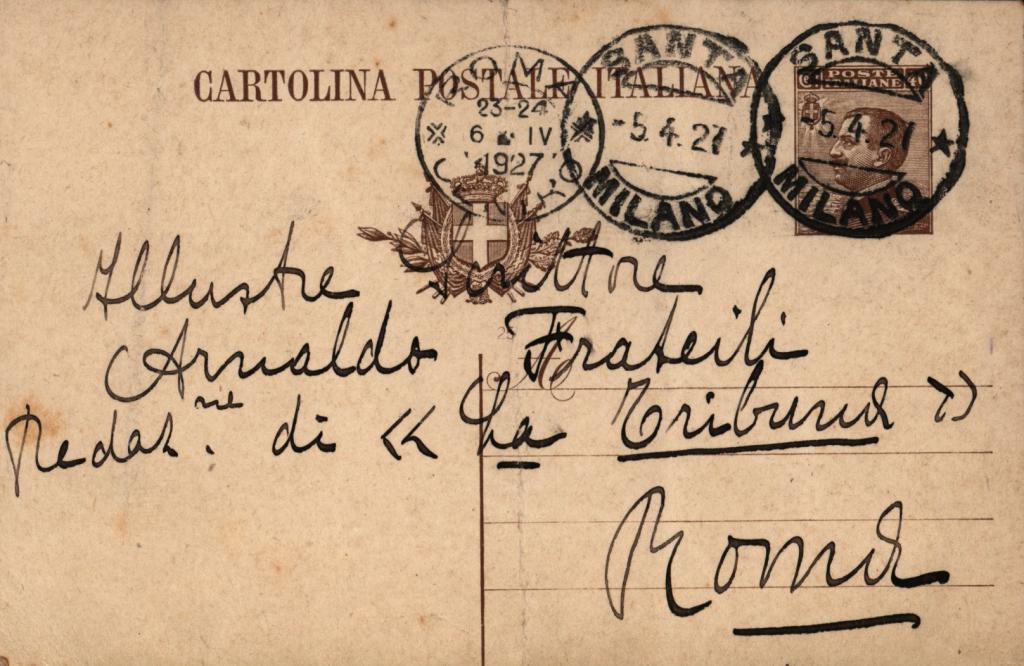 CARTOLINA POSTALE ITALIANA
ROMA
23-24
6 IV
1927
SANTA
-5.4.27
MILANO
SANTA
-5.4.27
MILANO
POSTE
ITALIANE
Illustre Scrittore
Arnaldo Frateili
Redaz.ne di « La Tribuna »
Roma